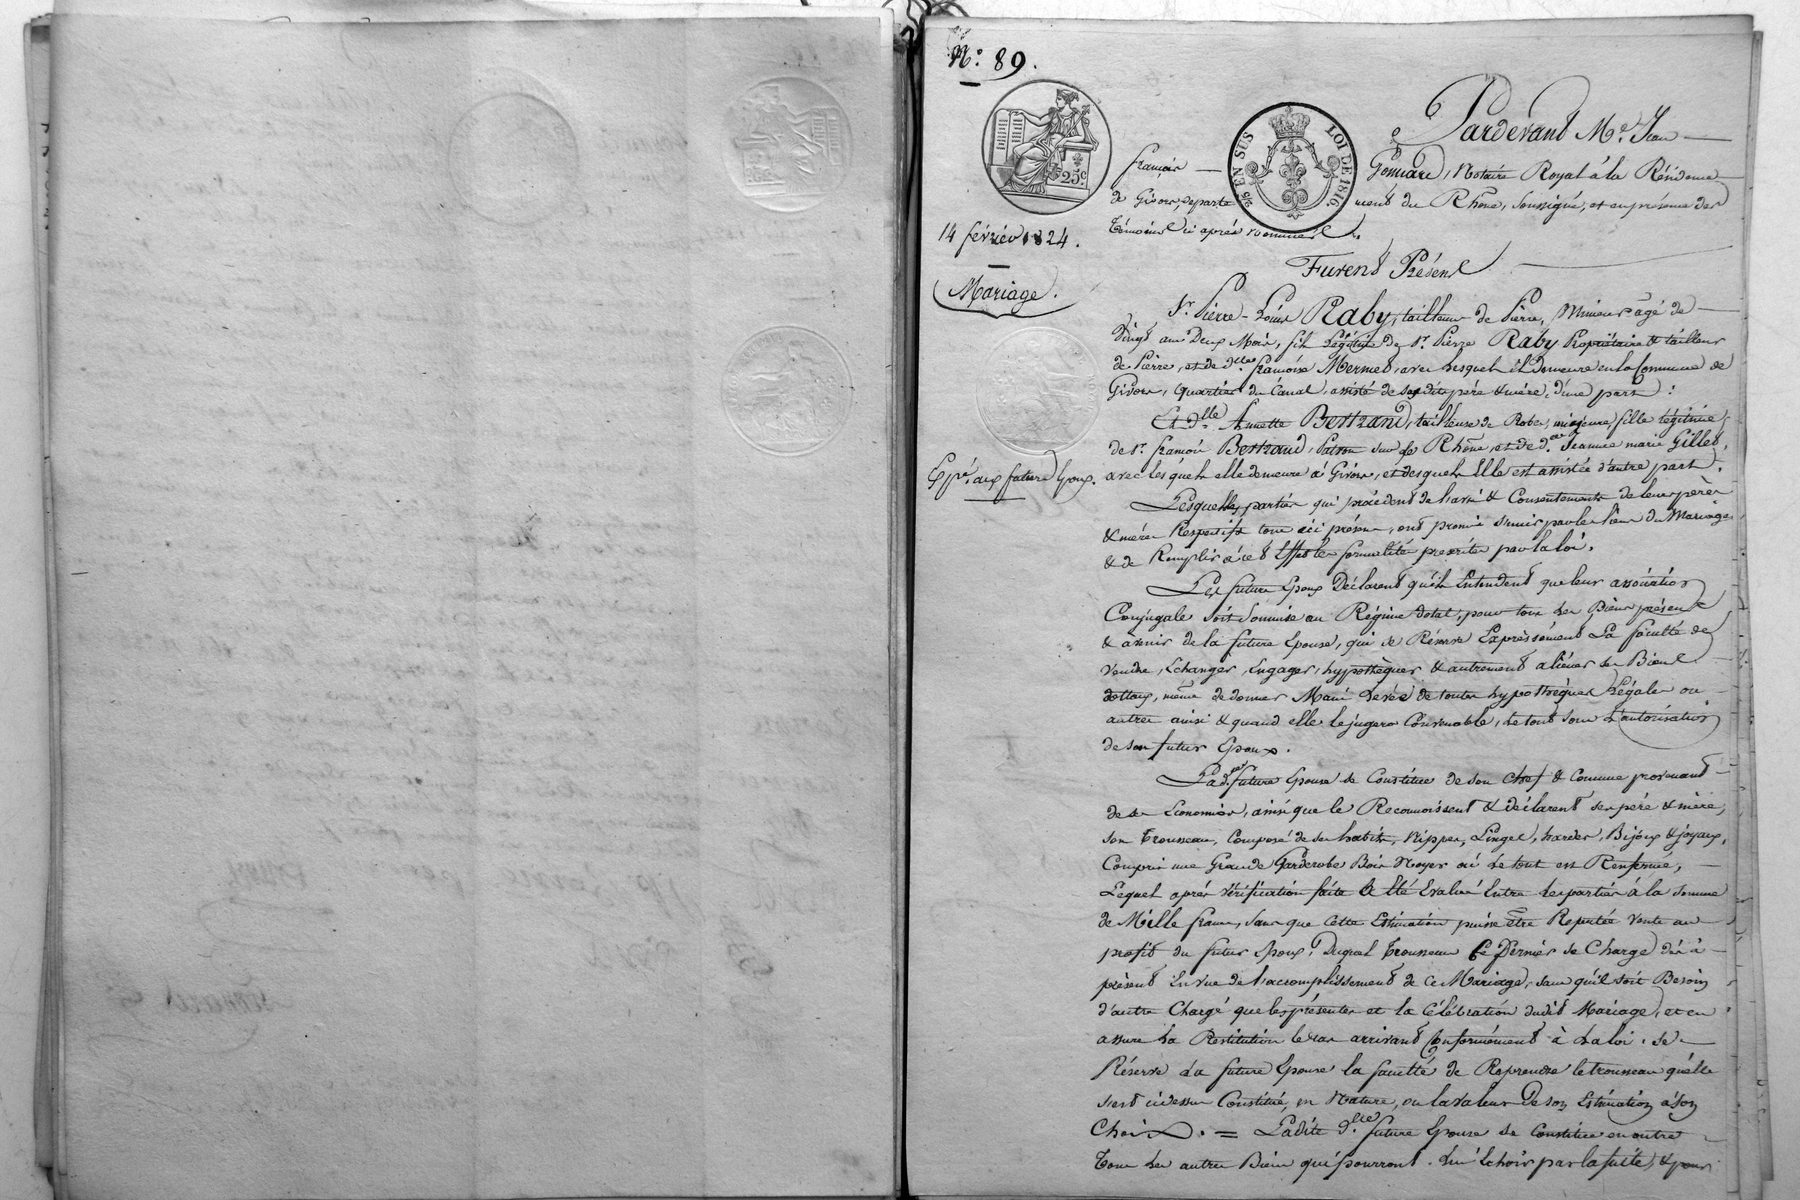 N.° 89.
25 EN SUS
LOI DE 1816
25c
Pardevant Me. Jean
françois Gonnard, Notaire Royal à la Résidence
de Givors, département du Rhône, soussigné, et en présence des
témoins ci après nommés.
14 février 1824.
Mariage.
Furent Présens
Sr. Pierre-Louis Raby, tailleur de Pierre, Mineur agé de
Vingt ans Deux Mois, fils Légitime de Sr. Pierre Raby Propriétaire & tailleur
de Pierre, et de dlle. françoise Mermet, avec lesquels il Demeure en la Commune de
Givors, Quartier du Canal, assisté de sesdits père & mère, d'une part:
Et dlle. Annette Bertrand, tailleuse de Robes, majeure, fille légitime
de Sr. françois Bertrand, Patron sur le Rhône, et de d. Jeanne marie Gillet,
avec lesquels elle demeure à Givors, et desquels Elle est assistée d'autre part:
Exp. aux futurs Epoux.
Lesquelles parties qui procèdent de l'avis & Consentement de leurs pères
& mères Respectifs tous ici présens, ont promis s'unir par les liens du Mariage
& de Remplir à cet Effet les formalités prescrites par la loi.
Les futurs Epoux Déclarent qu'ils Entendent que leur association
Conjugale soit soumise au Régime dotal, pour tous les Biens présens
& à venir de la future Epouse, qui se Réserve Expressément La faculté de
Vendre, Echanger, Engager, hypothèquer & autrement aliéner ses Biens
dottaux, même de donner Main levée de toutes hypothèques Légales ou
autres ainsi & quand elle le jugera Convenable, le tout sous L'autorisation
de son futur Epoux.
Lad. future Epouse se Constitue de son Chef & Comme provenant
de ses Economies, ainsi que le Reconnoissent & déclarent ses père & mère,
son trousseau, Composé de ses habits, Nippes, Linges, hardes, Bijoux & joyaux,
Compris une Grande Garderobe Bois Noyer où le tout est Renfermé,
Lequel après Vérification faite a Eté Evalué Entre les parties à la somme
de Mille francs, sans que cette Estimation puisse être Reputée vente au
profit du futur Epoux, Duquel trousseau Ce Dernier se Charge dès à
présent En vue de l'accomplissement de ce Mariage, sans qu'il soit Besoin
d'autre Chargé que les présentes et la Célébration dudit Mariage, et en
assure la Restitution le cas arrivant Conformément à La loi. se
Réserve la future Epouse la faculté de Reprendre le trousseau qu'elle
s'est cidessus Constitué, en Nature, ou la valeur de son Estimation à son
Choix. = Ladite dlle. future Epouse se Constitue en outre
tous les autres Biens qui pourront lui Echoir par la suite, & pour